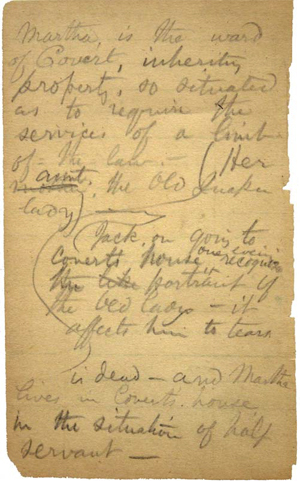 Martha, is the ward
of Covert, inheriting
property, so situated
as to require the
services of a limb
of the law.— (Her
mother aunt, the Old Quaker
lady) —
(Jack, on going to
Covert's house one evening recognizes
the like portrait of
the old lady — it
affects him to tears
is dead — and Martha
lives in Covert's house
in the situation of half
servant —